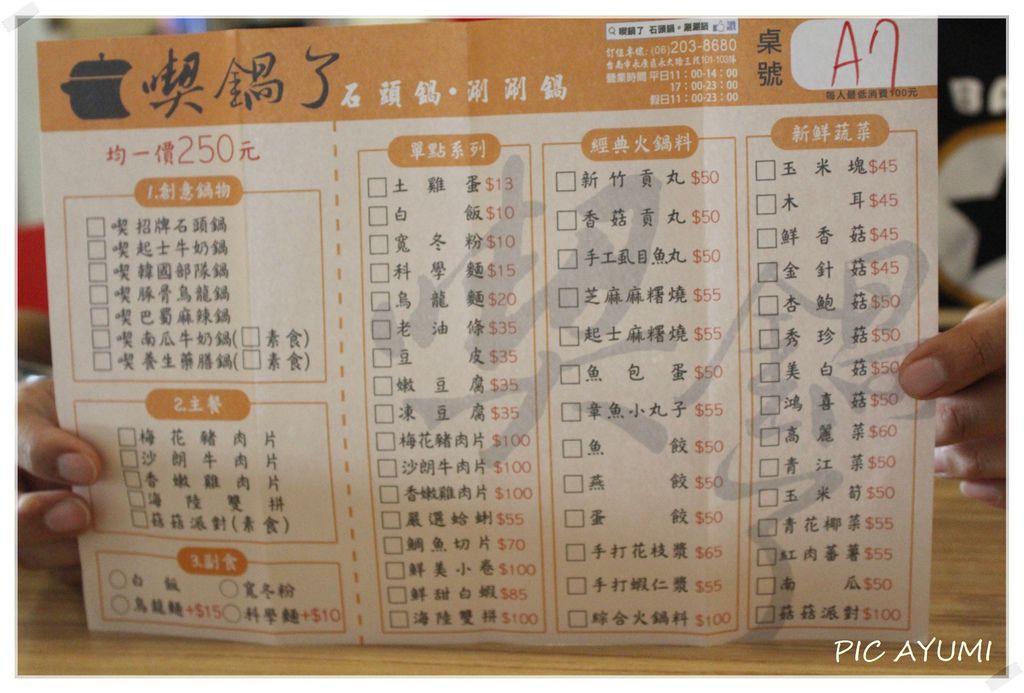 喫鍋了 石頭鍋・涮涮鍋
喫鍋了 石頭鍋。涮涮鍋
訂位專線:(06)203-8680
台南市永康區永大路三段101-103號
營業時間 平日11:00-14:00
17:00-23:00
假日11:00-23:00
桌號
A7
每人最低消費100元
均一價250元
1.創意鍋物
喫招牌石頭鍋
喫起士牛奶鍋
喫韓國部隊鍋
喫豚骨烏龍鍋
喫巴蜀麻辣鍋
喫南瓜牛奶鍋(素食)
喫養生藥膳鍋(素食)
2.主餐
梅花豬肉片
沙朗牛肉片
香嫩雞肉片
海陸雙拼
菇菇派對(素食)
3.副食
白飯 寬冬粉
烏龍麵+$15 科學麵+$10
單點系列
土雞蛋$13
白飯$10
寬冬粉$10
科學麵$15
烏龍麵$20
老油條$35
豆皮$35
嫩豆腐$35
凍豆腐$35
梅花豬肉片$100
沙朗牛肉片$100
香嫩雞肉片$100
嚴選蛤蜊$55
鯛魚切片$70
鮮美小卷$100
鮮甜白蝦$85
海陸雙拼$100
經典火鍋料
新竹貢丸$50
香菇貢丸$50
手工虱目魚丸$50
芝麻麻糬燒$55
起士麻糬燒$55
魚包蛋$50
章魚小丸子$55
魚餃$50
燕餃$50
蛋餃$50
手打花枝漿$65
手打蝦仁漿$55
綜合火鍋料$100
新鮮蔬菜
玉米塊$45
木耳$45
鮮香菇$45
金針菇$45
杏鮑菇$50
秀珍菇$50
美白菇$50
鴻喜菇$50
高麗菜$60
青江菜$50
玉米筍$50
青花椰菜$55
紅肉蕃薯$55
南瓜$50
菇菇派對$100
喫鍋了
PIC AYUMI